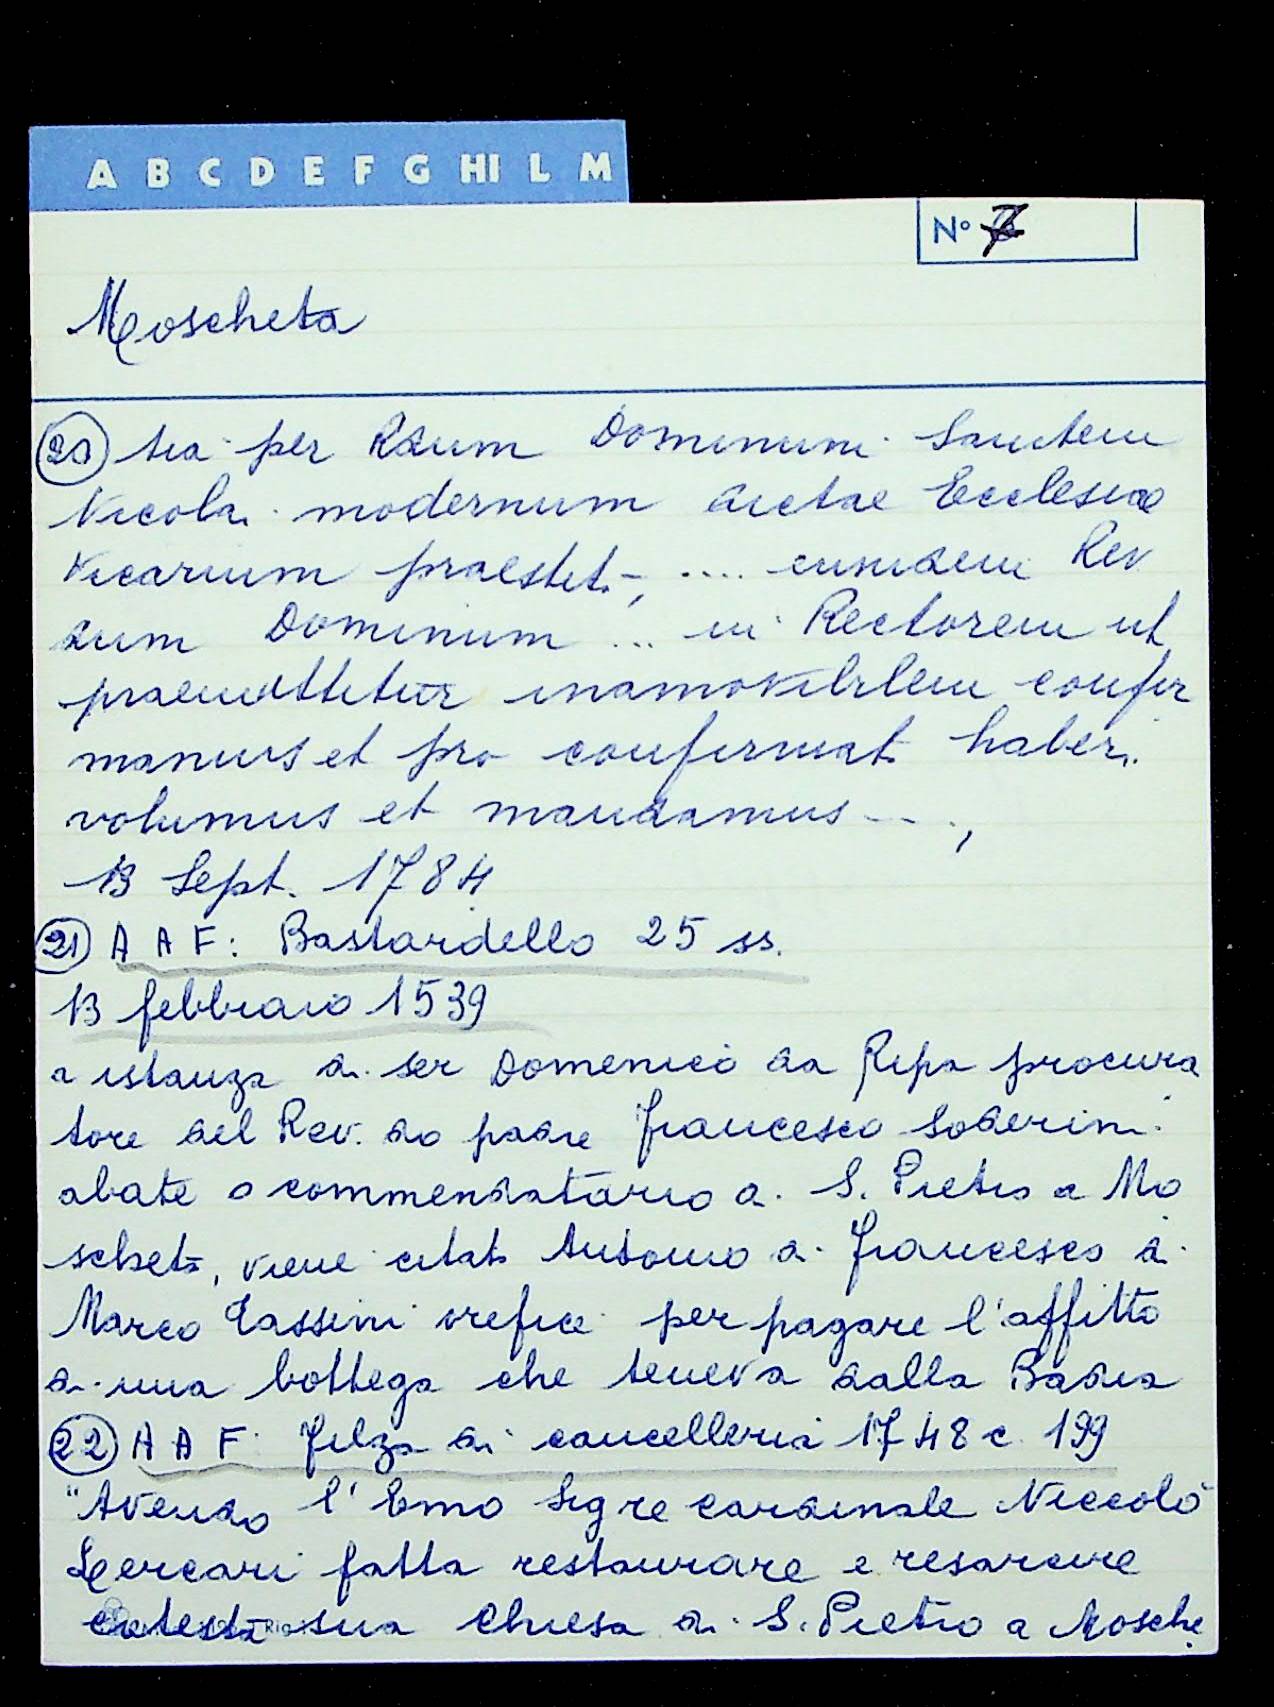 A B C D E F G HI L M
N° 7
Moscheta
20 tia per Rdum Dominum Santem
Nicolai modernum dictae Ecclesiae
Vicarium praestit-, .... eumdem Rev
dum Dominum ... in Rectorem ut
praemittitur inamovibilem confir
mamus et pro confirmato haberi
volumus et mandamus - - .,
13 Sept. 1784
21 A A F: Bastardello 25 ss.
13 febbraio 1539
a istanza di ser Domenico da Ripa procura
tore del Rev. do padre Francesco Soderini
abate o commendatario di S. Pietro a Mo
scheta, viene citato Antonio di Francesco di
Marco Tassini orefice per pagare l'affitto
di una bottega che teneva dalla Badia
22 A A F: Filza di cancelleria 1748 c 199
"Avendo l'Emo Sigre cardinale Niccolò
Lercari fatta restaurare e resarcire
cotesta sua Chiesa di S. Pietro a Mosche